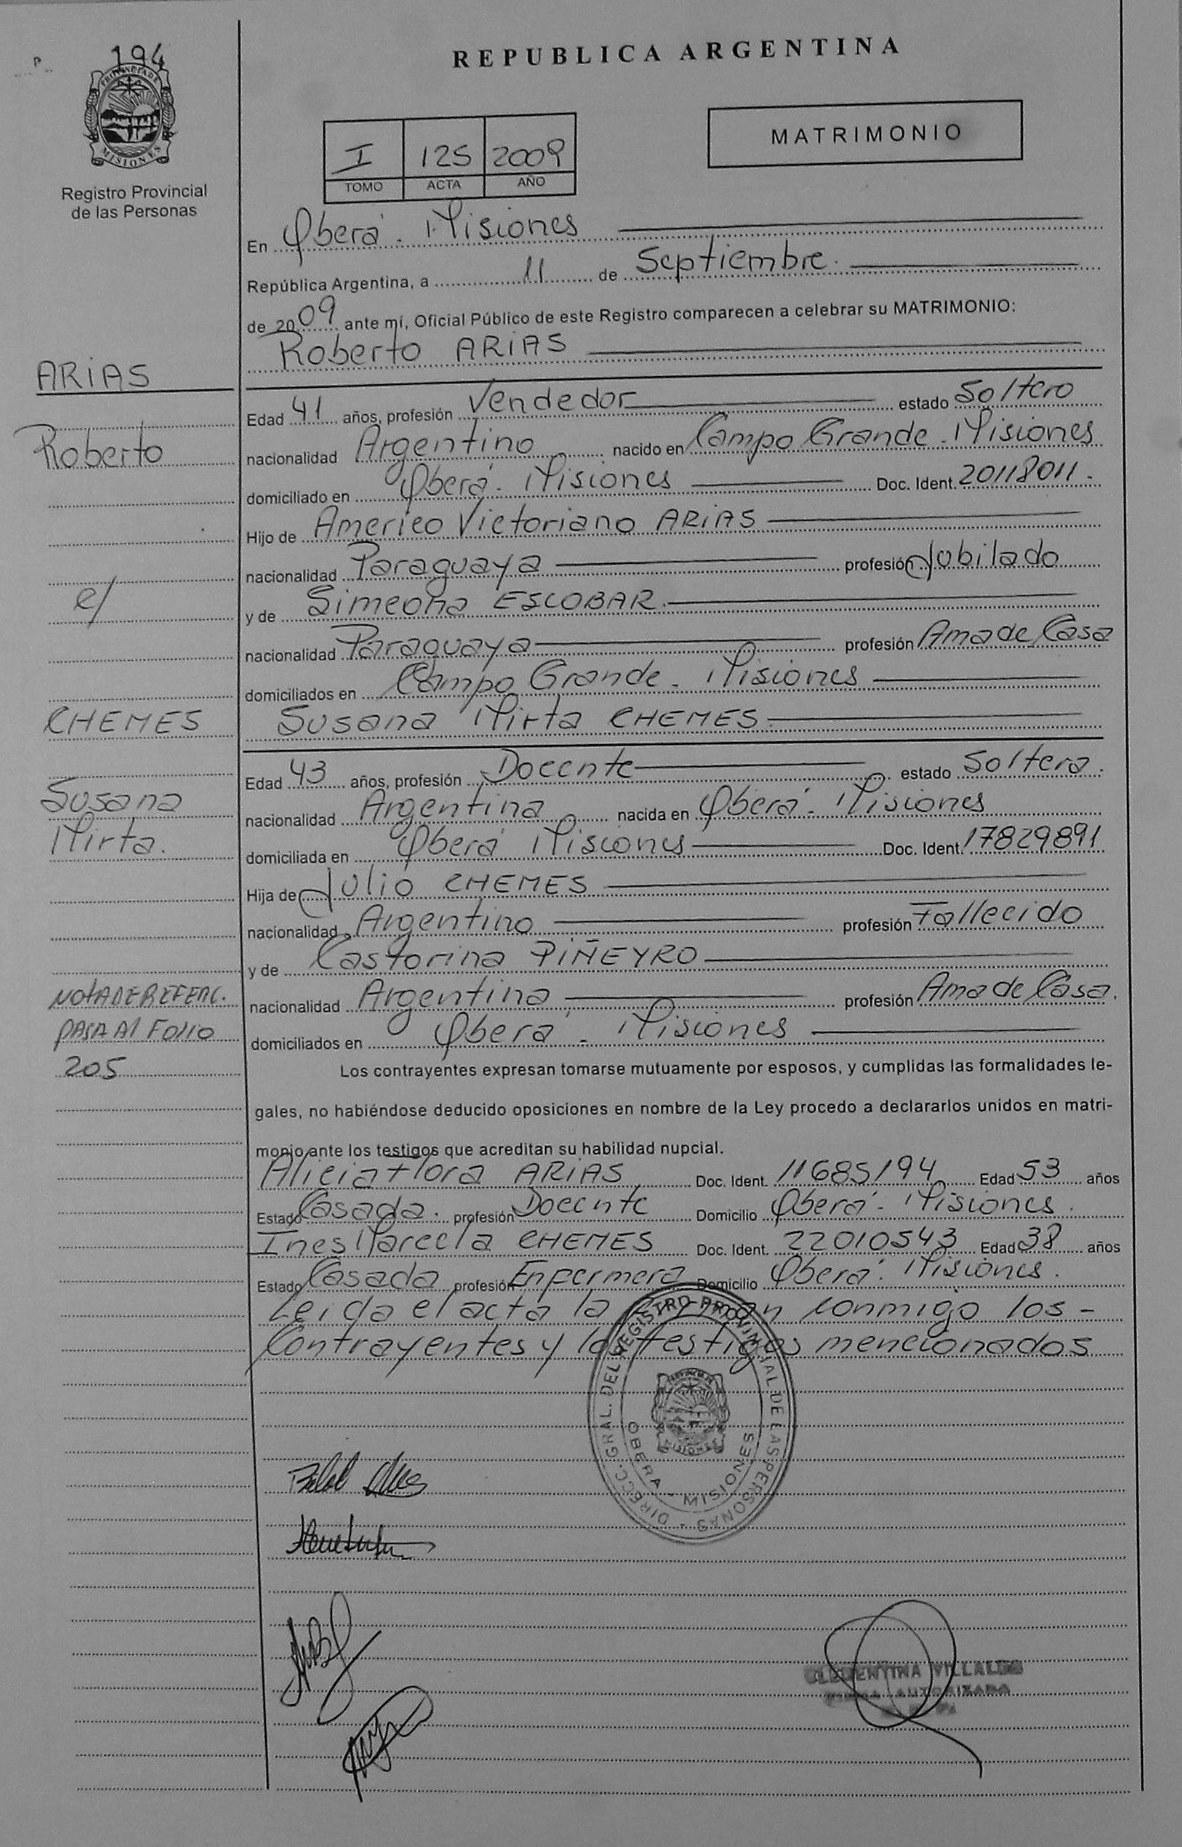 194
PROVINCIA DE
MISIONES
Registro Provincial
de las Personas
REPUBLICA ARGENTINA
MATRIMONIO
I 125 2009
TOMO ACTA AÑO
En Oberá - Misiones
República Argentina, a 11 de Septiembre.
de 2009 ante mí, Oficial Público de este Registro comparecen a celebrar su MATRIMONIO:
Roberto ARIAS
ARIAS
Roberto
c/
CHEMES
Susana
Mirta.
NOTA DE REFERC.
PASA Al FOLIO
205
Edad 41 años, profesión Vendedor estado Soltero
nacionalidad Argentino nacido en Campo Grande - Misiones
domiciliado en Oberá - Misiones Doc. Ident. 20118011.
Hijo de Americo Victoriano ARIAS
nacionalidad Paraguaya profesión Jubilado
y de Simeona ESCOBAR.
nacionalidad Paraguaya profesión Ama de Casa
domiciliados en Campo Grande - Misiones
Susana Mirta CHEMES.
Edad 43 años, profesión Docente estado Soltera.
nacionalidad Argentina nacida en Oberá - Misiones
domiciliada en Oberá Misiones Doc. Ident. 17829891
Hija de Julio CHEMES
nacionalidad Argentino profesión Fallecido
y de Castorina PIÑEYRO
nacionalidad Argentina profesión Ama de Casa.
domiciliados en Oberá - Misiones
Los contrayentes expresan tomarse mutuamente por esposos, y cumplidas las formalidades le-
gales, no habiéndose deducido oposiciones en nombre de la Ley procedo a declararlos unidos en matri-
monio ante los testigos que acreditan su habilidad nupcial.
Alicia Flora ARIAS Doc. Ident. 11685194 Edad 53 años
Estado Casada. profesión Docente Domicilio Oberá - Misiones.
Ines Marecla CHEMES Doc. Ident. 22010543 Edad 38 años
Estado Casada profesión Enfermera Domicilio Oberá - Misiones.
Leida el acta la conmigo los -
Contrayentes y los testigos mencionados
DIRECC. GRAL. DEL REGISTRO PROVINCIAL DE LAS PERSONAS
MISIONES
OBERA - MISIONES
CLEMENTINA VILLALBA
FIRMA AUTORIZADA